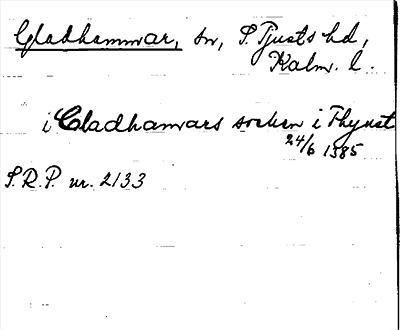 Gladhammar, sn, S. Tjusts hd,
Kalm. l.
i Gladhamars sochen i Thyust
24/6 1385
S.R.P. nr. 2133